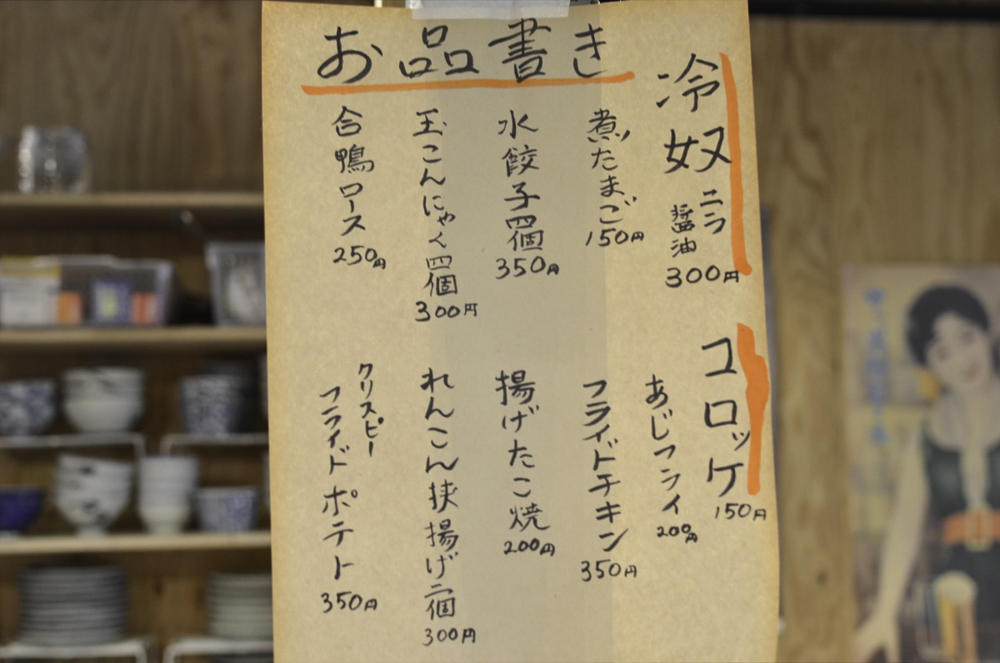 お品書き
冷奴
ニラ
醤油
300円
煮たまご
150円
水餃子四個
350円
玉こんにゃく四個
300円
合鴨ロース
250円
コロッケ
150円
あじフライ
200円
フライドチキン
350円
揚げたこ焼
200円
れんこん挟揚げ二個
300円
クリスピー
フライドポテト
350円